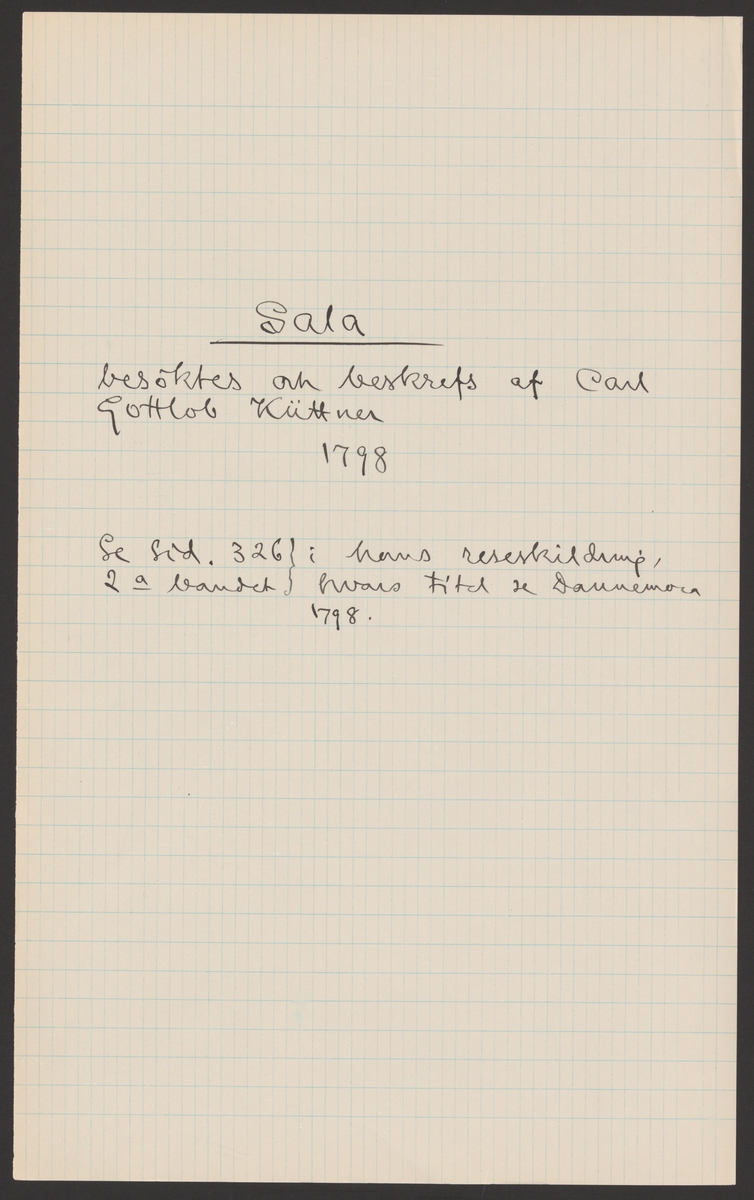 Sala
besöktes och beskrefs af Carl
Gottlob Küttner
1798
Se Sid. 326} i hans reseskildring,
2 a bandet} hvars titel se Dannemora
1798.